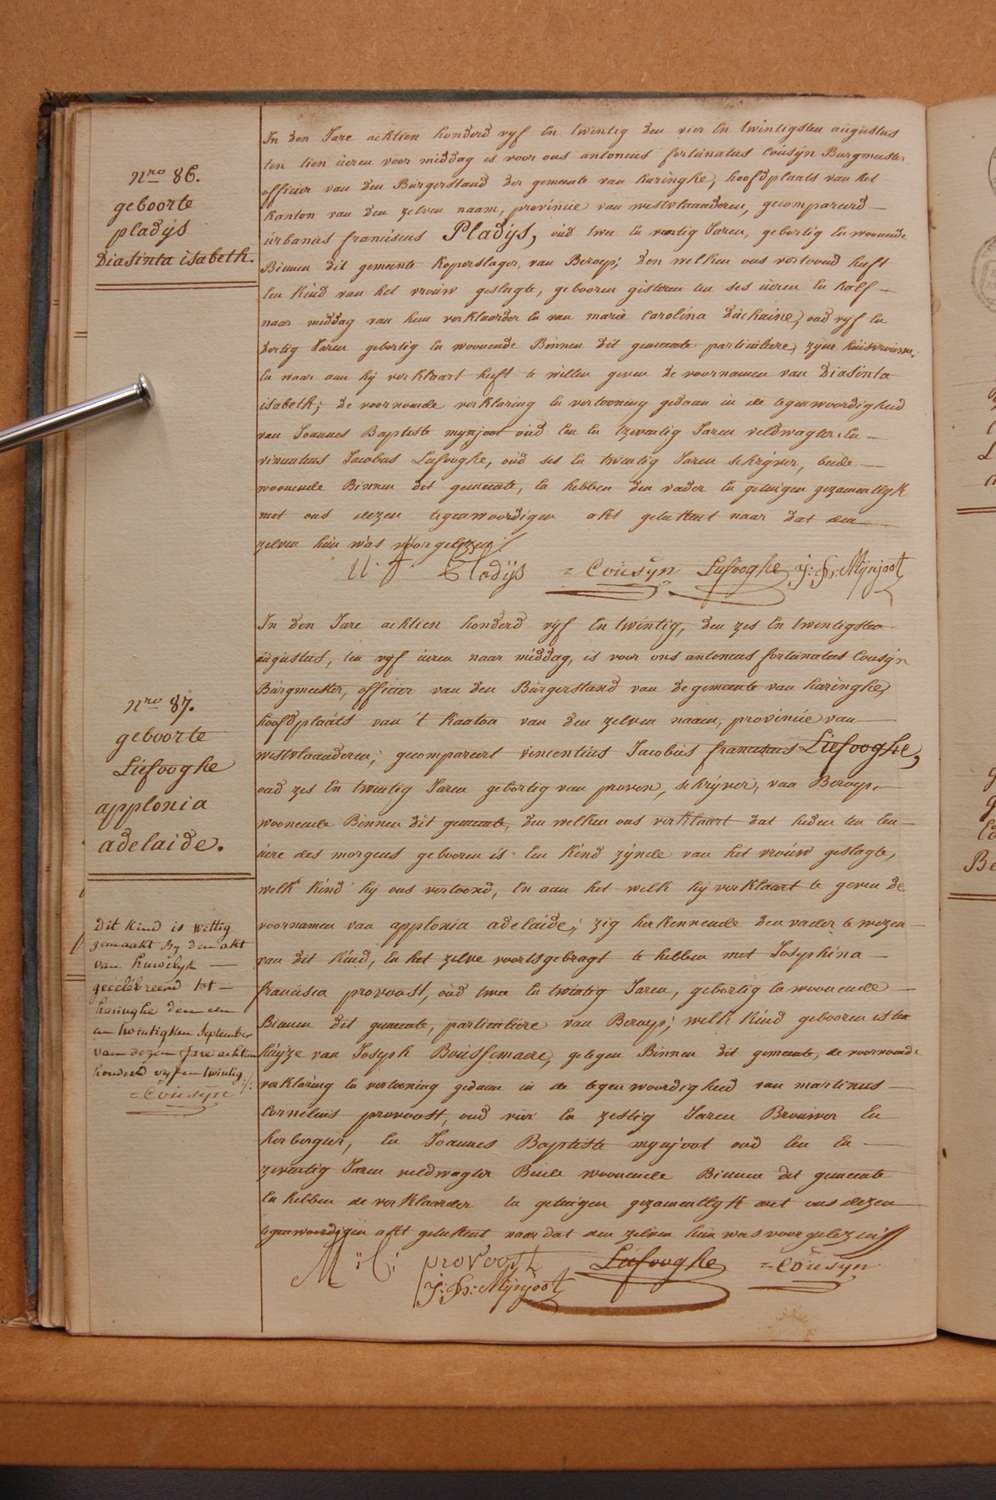 nro 86.
geboorte
pladÿs
Diasinta isabeth.
In den Jare achtien honderd vyf en twintig den vier en twintigsten augustus
ten tien ueren voor middag is voor ons antoneus fortunatus Cousÿn Burgmeester
officier van den Burgerstand der gemeente van haringhe, hoofdplaats van het
kanton van den zelven naam, provincie van westvlaanderen, gecompareerd
urbanus franciscus Pladÿs, oud twee en veertig Jaren, geboortig en woonende
Binnen dit gemeente koperslager, van Beroep; den welken ons vertoond heeft
een kind van het vrouw geslagte, gebooren gisteren ten ses ueren en half
naar middag van hem verklaarder en van marie Carolina Dachaine, oud vyf en
dertig Jaren geboortig en woonende Binnen dit gemeente particuliere, zyne huisvrouwe,
en naar aan hy verklaart heeft te willen geven de voornamen van Diasinta
isabeth; de voornoemde verklaring en vertooning gedaan in de tegenwoordigheid
van Joannes Baptiste mynjoot oud een en tzeventig Jaren veldwagter en
vincentius Jacobus Liefooghe, oud ses en twintig Jaren schryver, beide
woonende Binnen dit gemeente, en hebben den vader en getuigen gezamentlyk
met ons dezen tegenwoordigen akt geteekent naar dat den
zelven hun was voorgelezen
U: f: Pladÿs = Cousÿn Liefooghe J: B: Mÿnjoot
nro 87.
geboorte
Liefooghe
applonia
adelaide.
In den Jare achtien honderd vyf en twintig, den zes en twintigsten
augustus, ten vyf ueren naar middag, is voor ons antoneus fortunatus Cousÿn
Burgmeester, officier van den Burgerstand van de gemeente van haringhe,
hoofdplaats van 't kanton van den zelven naam, provincie van
westvlaanderen; gecompareert vincentius Jacobus franciscus Liefooghe,
oud zes en twintig Jaren gebortig van proven, schryver, van Beroep
woonende Binnen dit gemeente, den welken ons verklaart dat heden ten een
uere des morgens gebooren is een kind zynde van het vrouw geslagte,
welk kind hy ons vertoond, en aan het welk hy verklaart te geven de
voornamen van applonia adelaide; zig herkennende den vader te wezen
van dit kind, en het zelve voortsgebragt te hebben met Josephina
francisca provoost, oud twee en twintig Jaren, gebortig en woonende
Binnen dit gemeente, particuliere van Beroep; welk kind gebooren is ten
huyze van Joseph Boussemaere, gelegen Binnen dit gemeente, de voornoemde
verklaring en vertooning gedaan in de tegenwoordigheid van martinus
Cornelius provoost, oud vier en zestig Jaren Brouwer en
herbergier, en Joannes Baptiste mynjoot oud een en
zeventig Jaren veldwagter Beide woonende Binnen dit gemeente
en hebben de verklaarder en getuigen gezamentlyk met ons dezen
tegenwoordigen akt geteekent naar dat den zelven hun was voorgelezen
M: C: provoost Liefooghe = Cousÿn
J: B: Mÿnjoot
Dit kind is wettig
gemaakt by den akt
van huwelyk
gecelebreerd tot
haringhe den een
en twintigsten September
van dezen Jare achtien
honderd vyf en twintig
= Cousÿn